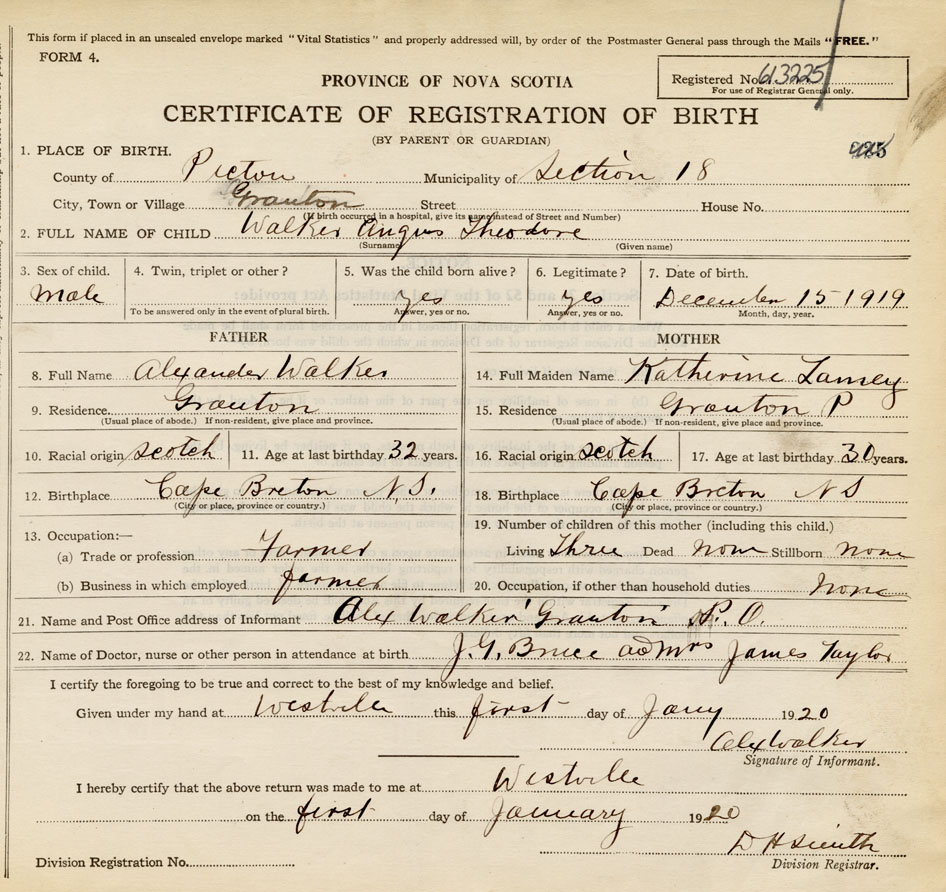 This form if placed in an unsealed envelope marked "Vital Statistics" and properly addressed will, by order of the Postmaster General pass through the Mails "FREE."
FORM 4.
PROVINCE OF NOVA SCOTIA
Registered No. 613225
For use of Registrar General only.
CERTIFICATE OF REGISTRATION OF BIRTH
(BY PARENT OR GUARDIAN)
1. PLACE OF BIRTH.
County of Picton Municipality of Section 18
City, Town or Village Granton Street House No.
(If birth occurred in a hospital, give its name instead of Street and Number)
2. FULL NAME OF CHILD Walker Angus Theodore
(Surname) (Given name)
3. Sex of child. 4. Twin, triplet or other? 5. Was the child born alive? 6. Legitimate? 7. Date of birth.
Male yes yes December 15 1919
To be answered only in the event of plural birth. Answer, yes or no. Answer, yes or no. Month, day, year.
FATHER MOTHER
8. Full Name Alexander Walker 14. Full Maiden Name Katherine
9. Residence. Granton 15. Residence Granton P
(Usual place of abode.) If non-resident, give place and province. (Usual place of abode.) If non-resident, give place and province.
10. Racial origin scotch 11. Age at last birthday 32 years. 16. Racial origin scotch 17. Age at last birthday 30 years.
12. Birthplace Cape Breton N.S. 18. Birthplace Cape Breton N S
(City or place, province or country.) (City or place, province or country.)
13. Occupation:— 19. Number of children of this mother (including this child.)
(a) Trade or profession Farmer Living Three Dead none Stillborn none
(b) Business in which employed farmer 20. Occupation, if other than household duties none
21. Name and Post Office address of Informant Alex Walker Granton P.O.
22. Name of Doctor, nurse or other person in attendance at birth J.G. Bruce Mrs James Taylor
I certify the foregoing to be true and correct to the best of my knowledge and belief.
Given under my hand at Westville this first day of Jany 1920
Alex Walker
Signature of Informant.
I hereby certify that the above return was made to me at Westville
on the first day of January 1920
D H Smith
Division Registration No. Division Registrar.